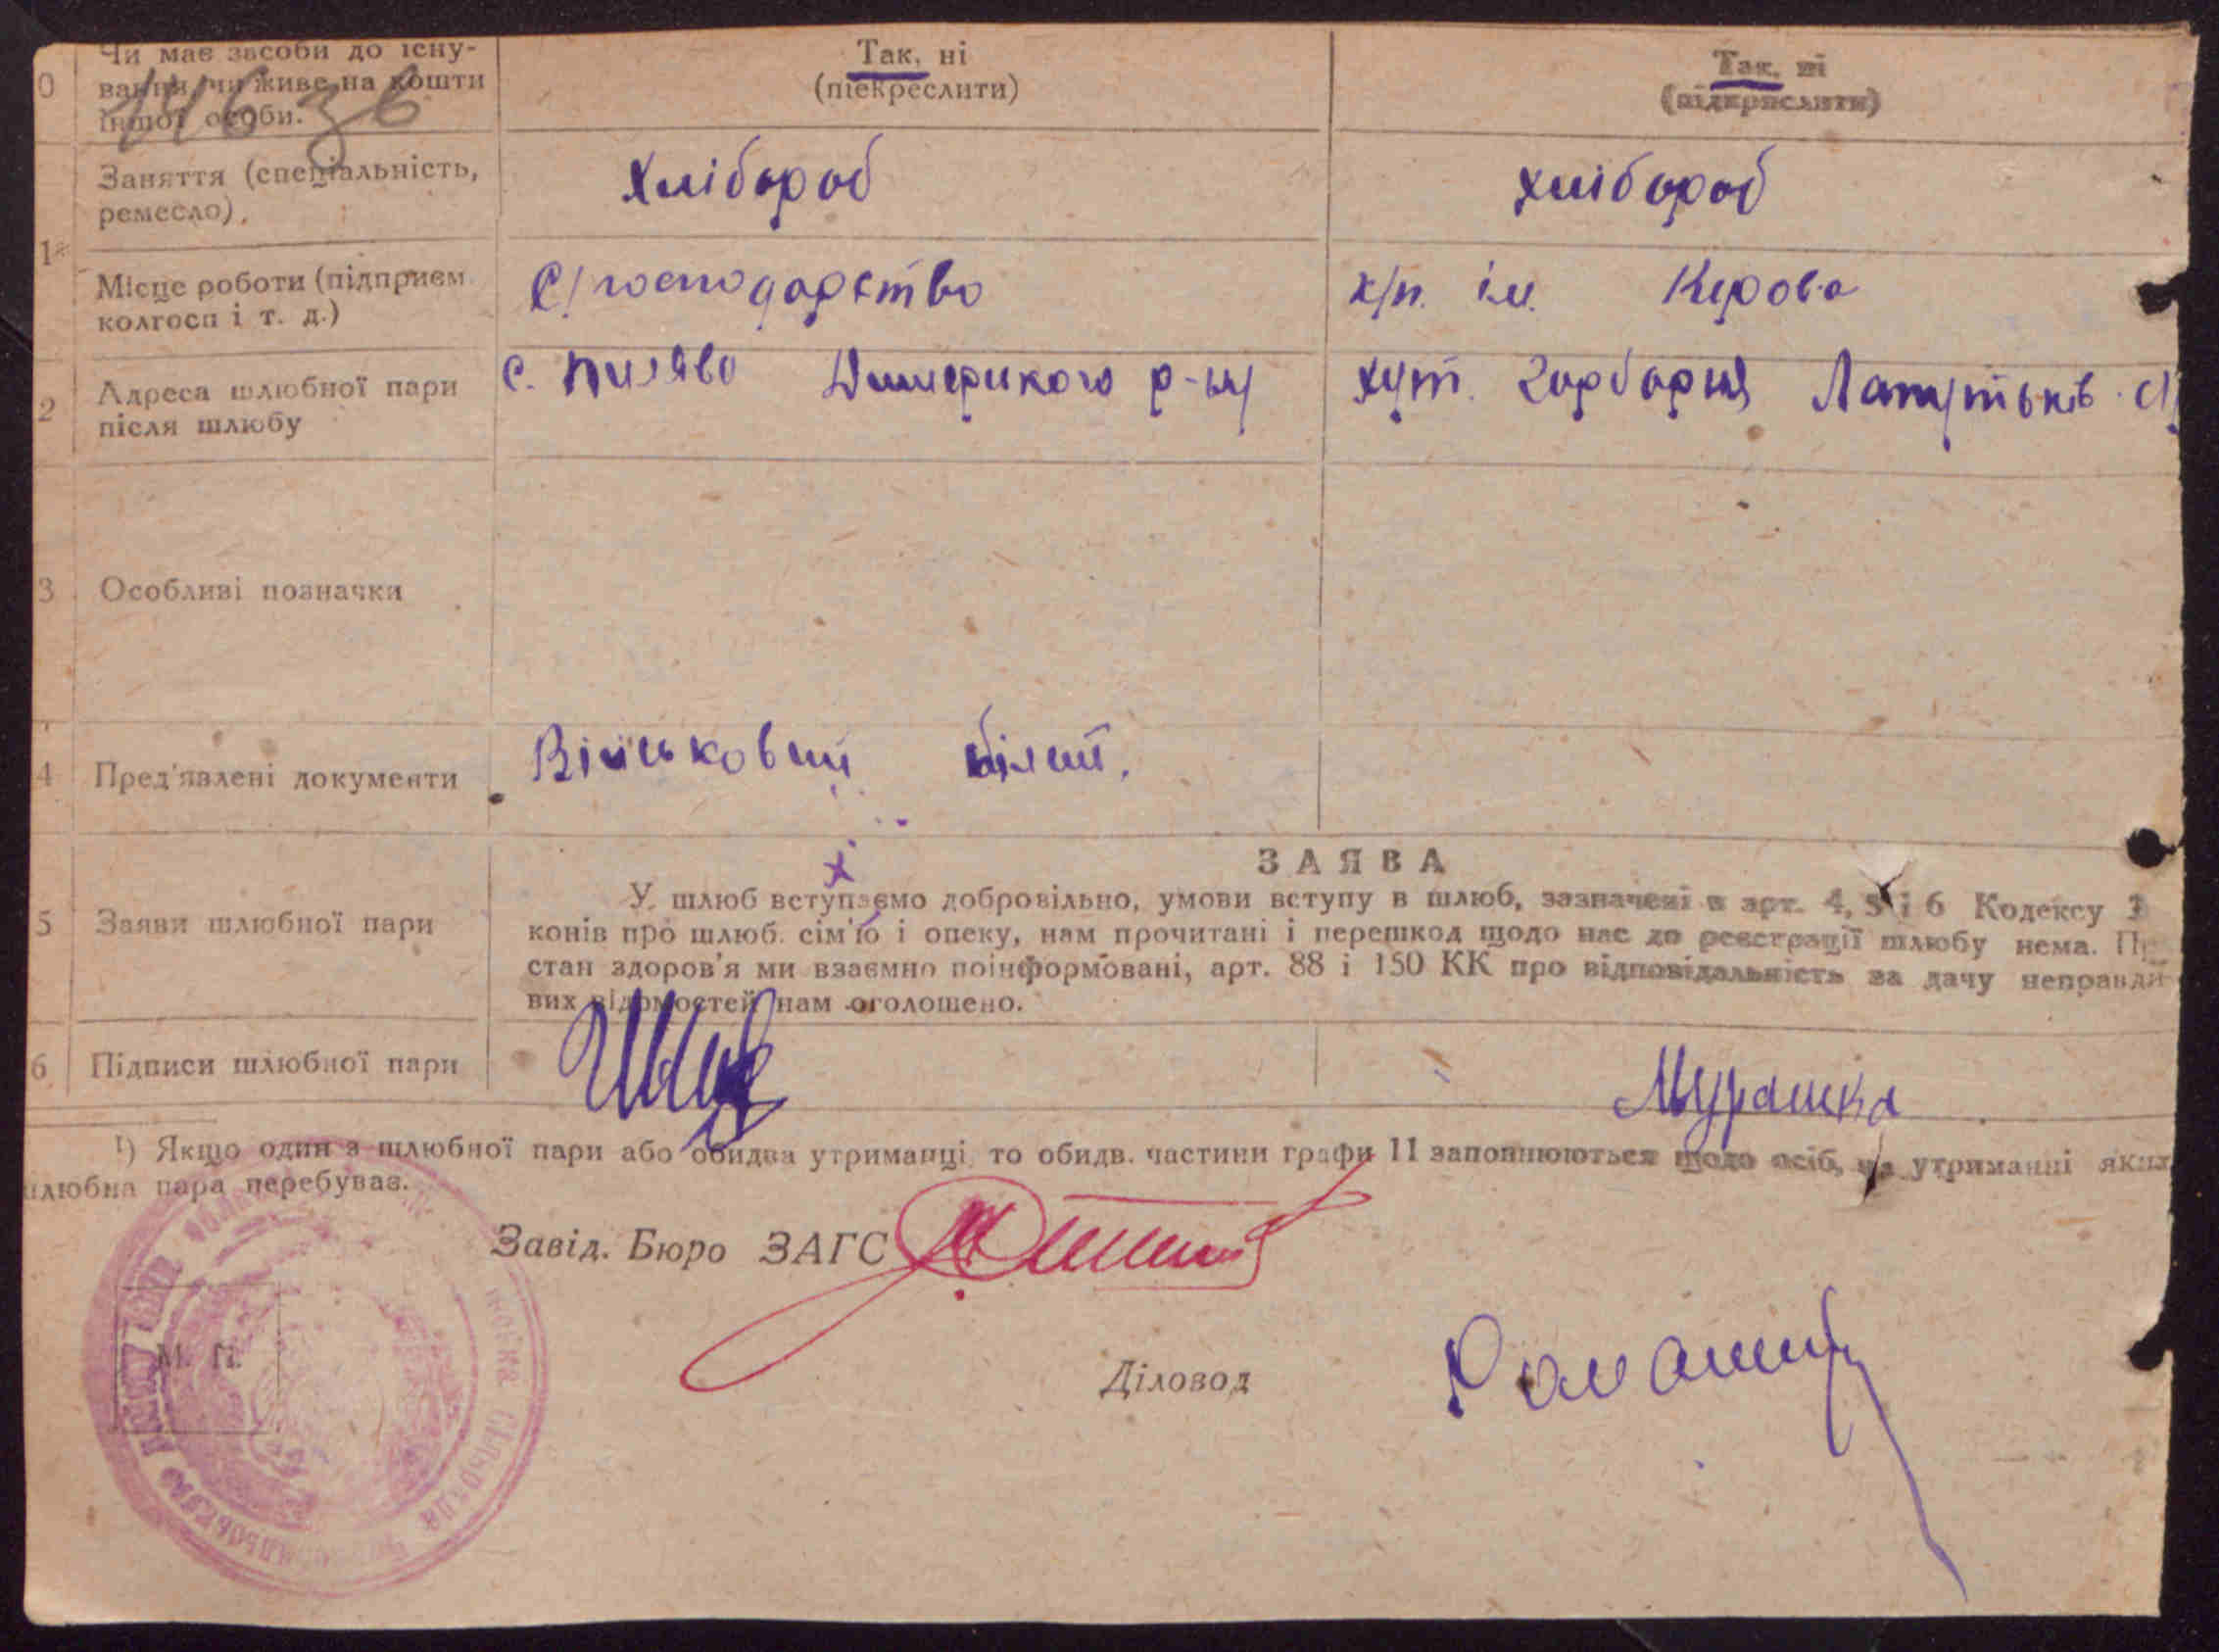 0 Чи має засоби до існу-
вання чи живе на кошти
іншої особи.
146 зв
Так, ні
(піекреслити)
Так, ні
(підкреслити)
1
Заняття (спеціальність,
ремесло)
Хлібороб
хлібороб
Місце роботи (підприєм.
колгосп і т. д.)
С/господарство
к/п. ім. Кірова
2 Адреса шлюбної пари
після шлюбу
с. Пилява Димерського р-ну
хут. Гарбарня
3 Особливі позначки
4 Пред'явлені документи
Військовий білет.
ЗАЯВА
5 Заяви шлюбної пари
У шлюб вступаємо добровільно, умови вступу в шлюб, зазначені в арт. 4, 5 і 6 Кодексу
конів про шлюб. сім'ю і опеку, нам прочитані і перешкод щодо нас до реєстрації шлюбу нема.
стан здоров'я ми взаємно поінформовані, арт. 88 і 150 КК про відповідальність за дачу неправди
вих відомостей нам оголошено.
6 Підписи шлюбної пари
Мурашка
1) Якщо один з шлюбної пари або обидва утриманці, то обидв. частини графи 11 заповнюються щодо осіб, на утриманні яких
шлюбна пара перебуває.
Завід. Бюро ЗАГС
М. П.
Діловод